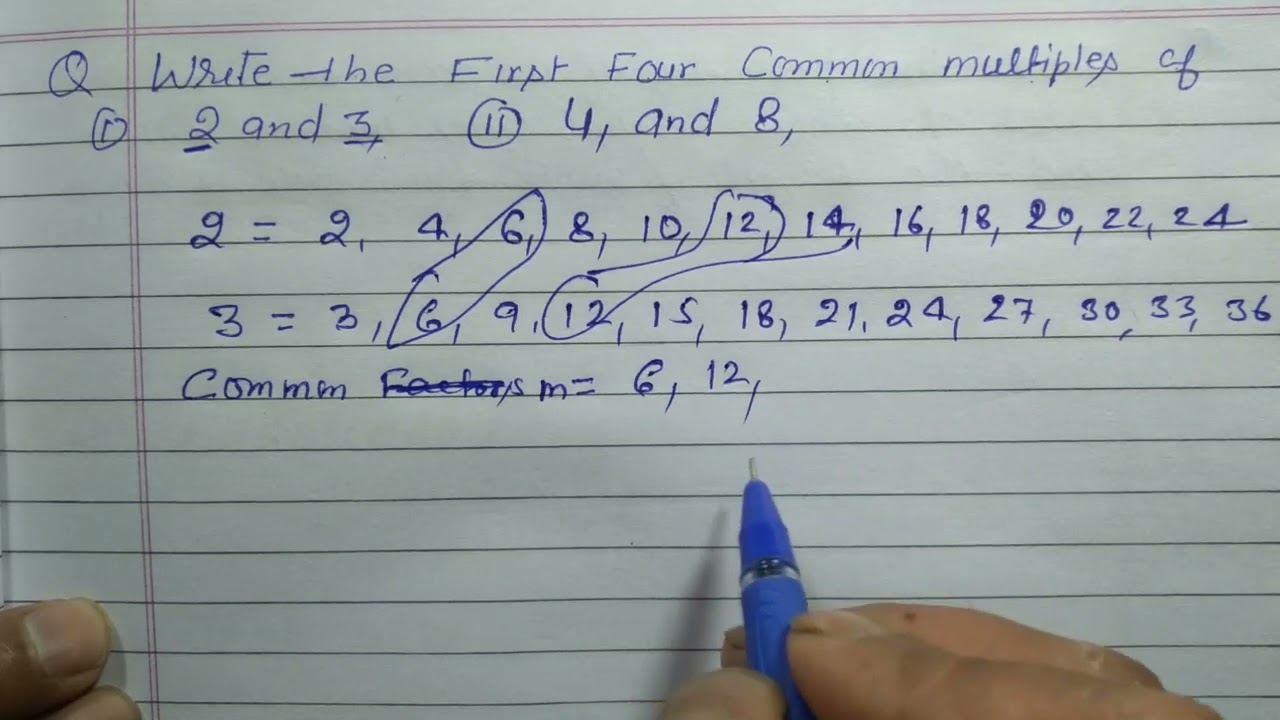 Q Write the First Four Common multiples of
(i) 2 and 3, (ii) 4, and 8,
2 = 2, 4, 6, 8, 10, 12, 14, 16, 18, 20, 22, 24
3 = 3, 6, 9, 12, 15, 18, 21, 24, 27, 30, 33, 36
Common Factors m = 6, 12,